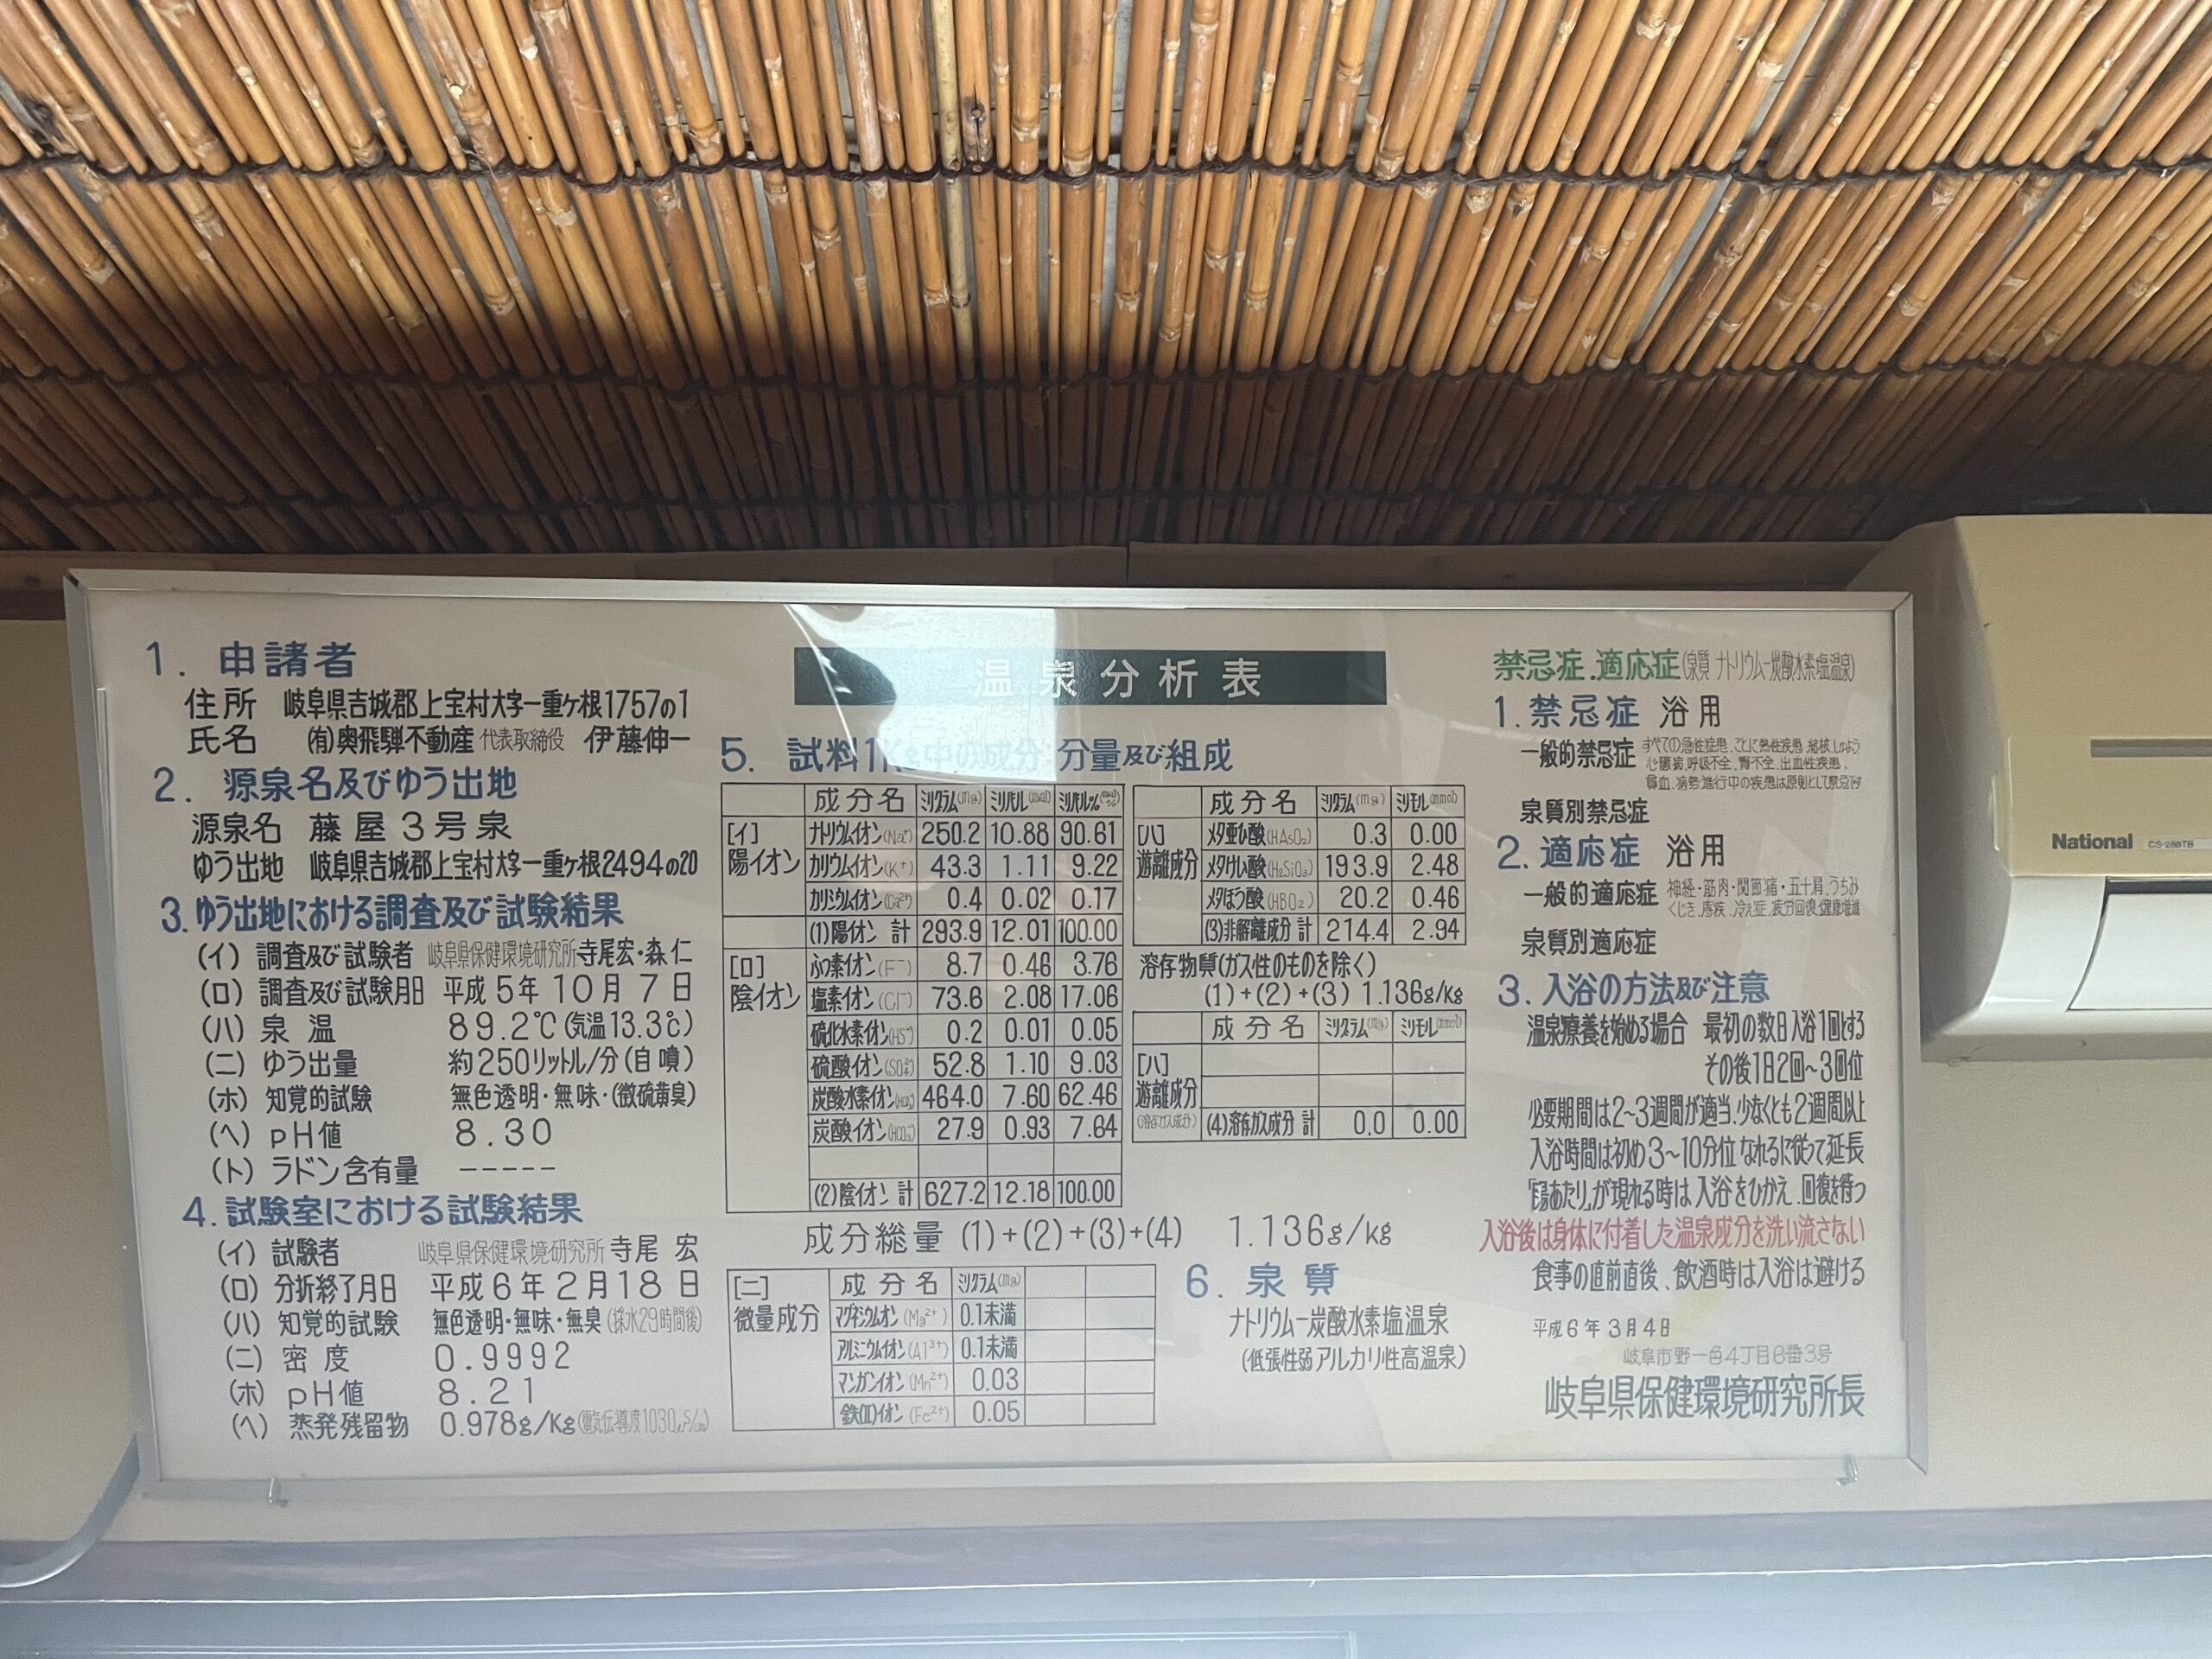 温泉分析表
1. 申請者
住所 岐阜県吉城郡上宝村大字一重ヶ根1757の1
氏名 (有)奥飛騨不動産 代表取締役 伊藤伸一
2. 源泉名及びゆう出地
源泉名 藤屋3号泉
ゆう出地 岐阜県吉城郡上宝村大字一重ヶ根2494の20
3.ゆう出地における調査及び試験結果
(イ) 調査及び試験者 岐阜県保健環境研究所 寺尾宏・森 仁
(ロ) 調査及び試験月日 平成5年10月7日
(ハ) 泉温 89.2℃(気温13.3℃)
(ニ) ゆう出量 約250リットル/分(自噴)
(ホ) 知覚的試験 無色透明・無味・(微硫黄臭)
(ヘ) pH値 8.30
(ト) ラドン含有量 -----
4.試験室における試験結果
(イ) 試験者 岐阜県保健環境研究所 寺尾 宏
(ロ) 分折終了月日 平成6年2月18日
(ハ) 知覚的試験 無色透明・無味・無臭(採水29時間後)
(ニ) 密度 0.9992
(ホ) pH値 8.21
(ヘ) 蒸発残留物 0.978g/Kg(電気伝導度1030μS/cm)
5. 試料1Kg中の成分 分量及び組成
成分名 ミリグラム(mg) ミリバル(mval) ミリバル%(mval%)
[イ] 陽イオン
ナトリウムイオン(Na⁺) 250.2 10.88 90.61
カリウムイオン(K⁺) 43.3 1.11 9.22
カルシウムイオン(Ca²⁺) 0.4 0.02 0.17
(1)陽イオン 計 293.9 12.01 100.00
[ロ] 陰イオン
ふっ素イオン(F⁻) 8.7 0.46 3.76
塩素イオン(Cl⁻) 73.6 2.08 17.06
硫化水素イオン(HS⁻) 0.2 0.01 0.05
硫酸イオン(SO₄²⁻) 52.8 1.10 9.03
炭酸水素イオン 464.0 7.60 62.46
炭酸イオン 27.9 0.93 7.64
(2)陰イオン 計 627.2 12.18 100.00
成分名 ミリグラム(mg) ミリモル(mmol)
[ハ] 遊離成分
メタ亜ひ酸(HAsO₂) 0.3 0.00
メタけい酸(H₂SiO₃) 193.9 2.48
メタほう酸(HBO₂) 20.2 0.46
(3)非解離成分 計 214.4 2.94
溶存物質(ガス性のものを除く)
(1)+(2)+(3) 1.136g/kg
成分名 ミリグラム(mg) ミリモル(mmol)
[ハ] 遊離成分
(溶存ガス成分)
(4)溶存ガス成分 計 0.0 0.00
成分総量 (1)+(2)+(3)+(4) 1.136g/kg
[ニ] 微量成分
成分名 ミリグラム(mg)
マグネシウムイオン(Mg²⁺) 0.1未満
アルミニウムイオン(Al³⁺) 0.1未満
マンガンイオン(Mn²⁺) 0.03
鉄(Ⅱ)イオン(Fe²⁺) 0.05
6. 泉質
ナトリウムー炭酸水素塩温泉
(低張性弱アルカリ性高温泉)
禁忌症.適応症(泉質 ナトリウムー炭酸水素塩温泉)
1.禁忌症 浴用
一般的禁忌症 すべての急性症患、ことに熱性疾患 結核、しゅよう
心臓病、呼吸不全、腎不全、出血性疾患、
貧血、病勢進行中の疾患は原則として禁忌です
泉質別禁忌症
2.適応症 浴用
一般的適応症 神経・筋肉・関節痛・五十肩、うちみ
くじき、痔疾、冷え症、疲労回復、健康増進
泉質別適応症
3.入浴の方法及び注意
温泉療養を始める場合 最初の数日入浴1回とする
その後1日2回〜3回位
必要期間は2〜3週間が適当、少なくとも2週間以上
入浴時間は初め3〜10分位 なれるに従って延長
「湯あたり」が現れる時は入浴をひかえ、回復を待つ
入浴後は身体に付着した温泉成分を洗い流さない
食事の直前直後、飲酒時は入浴は避ける
平成6年3月4日
岐阜市野一色4丁目6番3号
岐阜県保健環境研究所長
National